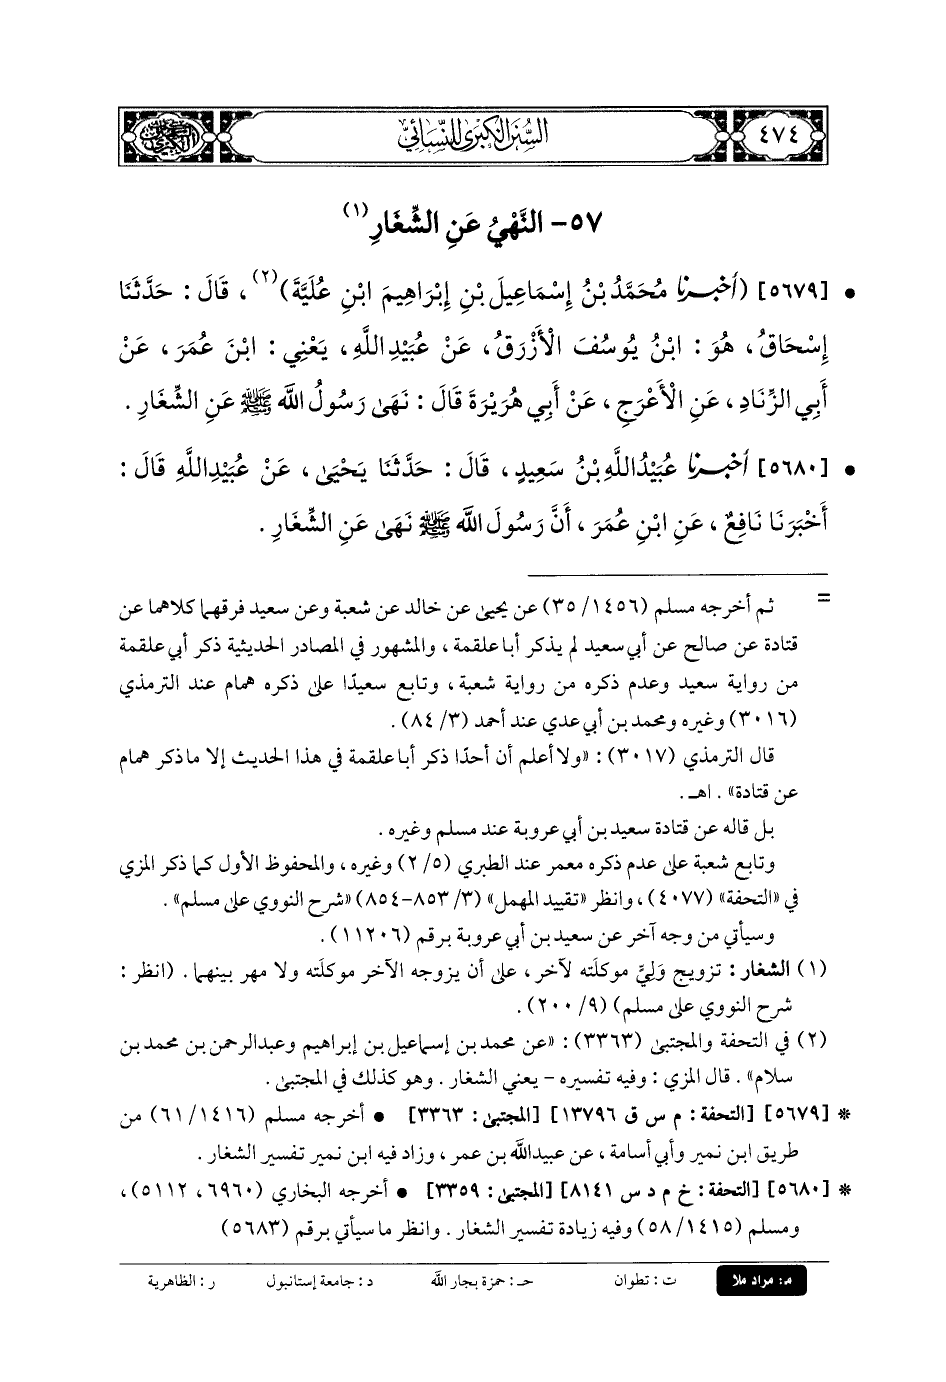 ٤٧٤
السنن الكبرى للنسائي
٥٧- النَّهْيُ عَنِ الشِّغَارِ (١)
• [٥٦٧٩] (أخبرنا مُحَمَّدُ بْنُ إِسْمَاعِيلَ بْنِ إِبْرَاهِيمَ ابْنِ عُلَيَّةَ)(٢)، قَالَ : حَدَّثَنَا
إِسْحَاقُ، هُوَ : ابْنُ يُوسُفَ الْأَزْرَقُ، عَنْ عُبَيْدِ اللَّهِ، يَعْنِي : ابْنَ عُمَرَ، عَنْ
أَبِي الزِّنَادِ، عَنِ الْأَعْرَجِ، عَنْ أَبِي هُرَيْرَةَ قَالَ : نَهَى رَسُولُ اللَّهِ ﷺ عَنِ الشِّغَارِ .
• [٥٦٨٠] أخبرنا عُبَيْدُاللَّهِ بْنُ سَعِيدٍ، قَالَ : حَدَّثَنَا يَحْيَى، عَنْ عُبَيْدِاللَّهِ قَالَ :
أَخْبَرَنَا نَافِعٌ، عَنِ ابْنِ عُمَرَ، أَنَّ رَسُولَ اللَّهِ ﷺ نَهَى عَنِ الشِّغَارِ .
= ثم أخرجه مسلم (١٤٥٦/ ٣٥) عن يحيى عن خالد عن شعبة وعن سعيد فرقهما كلاهما عن
قتادة عن صالح عن أبي سعيد لم يذكر أبا علقمة، والمشهور في المصادر الحديثية ذكر أبي علقمة
من رواية سعيد وعدم ذكره من رواية شعبة، وتابع سعيدًا على ذكره همام عند الترمذي
(٣٠١٦) وغيره ومحمد بن أبي عدي عند أحمد (٣/ ٨٤) .
قال الترمذي (٣٠١٧) : «ولا أعلم أن أحدًا ذكر أبا علقمة في هذا الحديث إلا ما ذكر همام
عن قتادة» . اهـ .
بل قاله عن قتادة سعيد بن أبي عروبة عند مسلم وغيره .
وتابع شعبة على عدم ذكره معمر عند الطبري (٥/ ٢) وغيره، والمحفوظ الأول كما ذكر المزي
في «التحفة» (٤٠٧٧)، وانظر «تقييد المهمل» (٣/ ٨٥٣-٨٥٤) «شرح النووي على مسلم» .
وسيأتي من وجه آخر عن سعيد بن أبي عروبة برقم (١١٢٠٦) .
(١) الشغار : تزويج وَلِيٍّ موكلَته لآخر، على أن يزوجه الآخر موكلَته ولا مهر بينهما . (انظر :
شرح النووي على مسلم) (٩/ ٢٠٠) .
(٢) في التحفة والمجتبى (٣٣٦٣) : «عن محمد بن إسماعيل بن إبراهيم وعبدالرحمن بن محمد بن
سلام» . قال المزي : وفيه تفسيره - يعني الشغار . وهو كذلك في المجتبى .
* [٥٦٧٩] [التحفة : م س ق ١٣٧٩٦] [المجتبى : ٣٣٦٣] • أخرجه مسلم (١٤١٦/ ٦١) من
طريق ابن نمير وأبي أسامة، عن عبيدالله بن عمر، وزاد فيه ابن نمير تفسير الشغار .
* [٥٦٨٠] [التحفة : خ م د س ٨١٤١] [المجتبى : ٣٣٥٩] • أخرجه البخاري (٦٩٦٠، ٥١١٢)،
ومسلم (١٤١٥/ ٥٨) وفيه زيادة تفسير الشغار . وانظر ما سيأتي برقم (٥٦٨٣)
م: مراد ملا ت : تطوان حـ : حمزة بجار الله د : جامعة إستانبول ر : الظاهرية